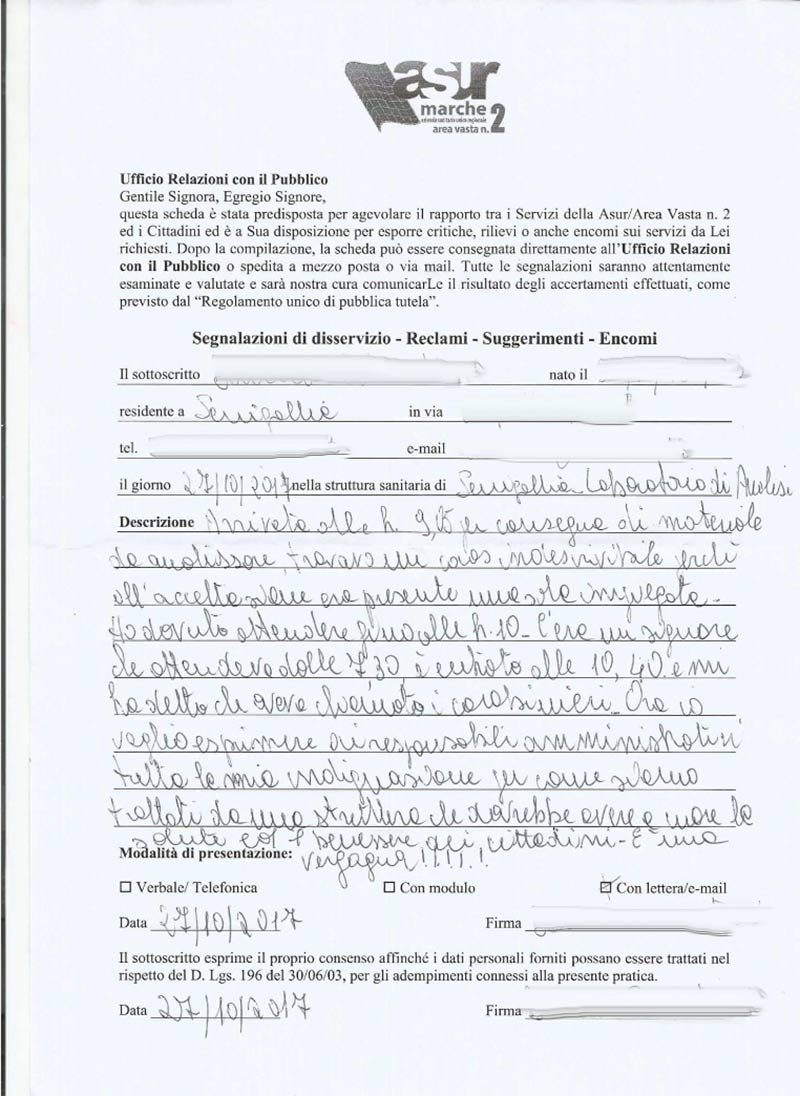 asur
marche 2
azienda sanitaria unica regionale
area vasta n.
Ufficio Relazioni con il Pubblico
Gentile Signora, Egregio Signore,
questa scheda è stata predisposta per agevolare il rapporto tra i Servizi della Asur/Area Vasta n. 2
ed i Cittadini ed è a Sua disposizione per esporre critiche, rilievi o anche encomi sui servizi da Lei
richiesti. Dopo la compilazione, la scheda può essere consegnata direttamente all'Ufficio Relazioni
con il Pubblico o spedita a mezzo posta o via mail. Tutte le segnalazioni saranno attentamente
esaminate e valutate e sarà nostra cura comunicarLe il risultato degli accertamenti effettuati, come
previsto dal “Regolamento unico di pubblica tutela”.
Segnalazioni di disservizio - Reclami - Suggerimenti - Encomi
Il sottoscritto nato il
residente a Senigallia in via
tel. e-mail
il giorno 27/10/2017 nella struttura sanitaria di Senigallia Laboratorio di Analisi
Descrizione Arrivata alle h. 9,15 per consegna di materiale
da analizzare, trovavo un caos indescrivibile perché
all'accettazione era presente una sola impiegata -
Ho dovuto attendere fino alle h. 10 - C'era un signore
che attendeva dalle 7,30, è entrato alle 10,40 e mi
ha detto che aveva chiamato i carabinieri - Ora io
voglio esprimere ai responsabili amministrativi
tutta la mia indignazione per come siamo
trattati da una struttura che dovrebbe avere a cuore la
salute ed il benessere dei cittadini - È una
vergogna!!!!!
Modalità di presentazione:
Verbale/ Telefonica Con modulo Con lettera/e-mail
Data 27/10/2017 Firma
Il sottoscritto esprime il proprio consenso affinché i dati personali forniti possano essere trattati nel
rispetto del D. Lgs. 196 del 30/06/03, per gli adempimenti connessi alla presente pratica.
Data 27/10/2017 Firma